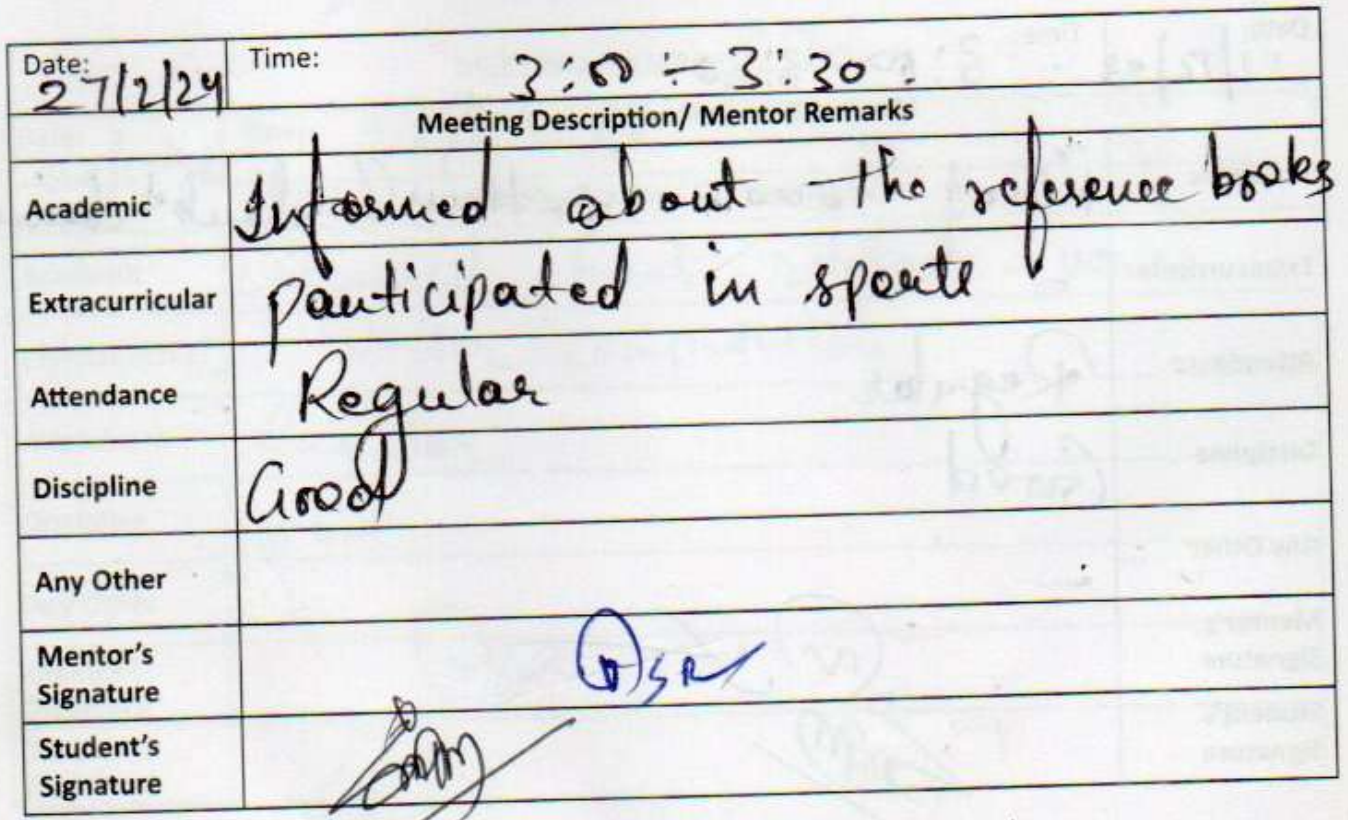 Date: 27/2/24 Time: 3:00 - 3:30.
Meeting Description/ Mentor Remarks
Academic Informed about the reference books
Extracurricular participated in sports
Attendance Regular
Discipline Good
Any Other
Mentor's
Signature
Student's
Signature